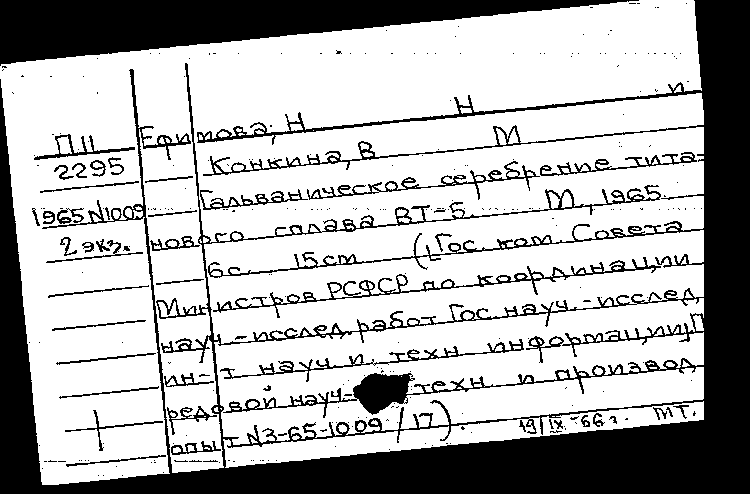 П11 Ефимова, Н Н и
2295 Конкина, В М
Гальваническое серебрение тита-
1965 N1009 нового сплава ВТ-5. М., 1965
2 экз. 6с. 15см ([Гос. ком. Совета
Министров РСФСР по координации
науч.-исслед. работ Гос. науч.-исслед.
ин-т науч и. техн информации] П
редовой науч- техн и производ
опыт N3-65-1009 /17).
19/IX-66г. МТ.